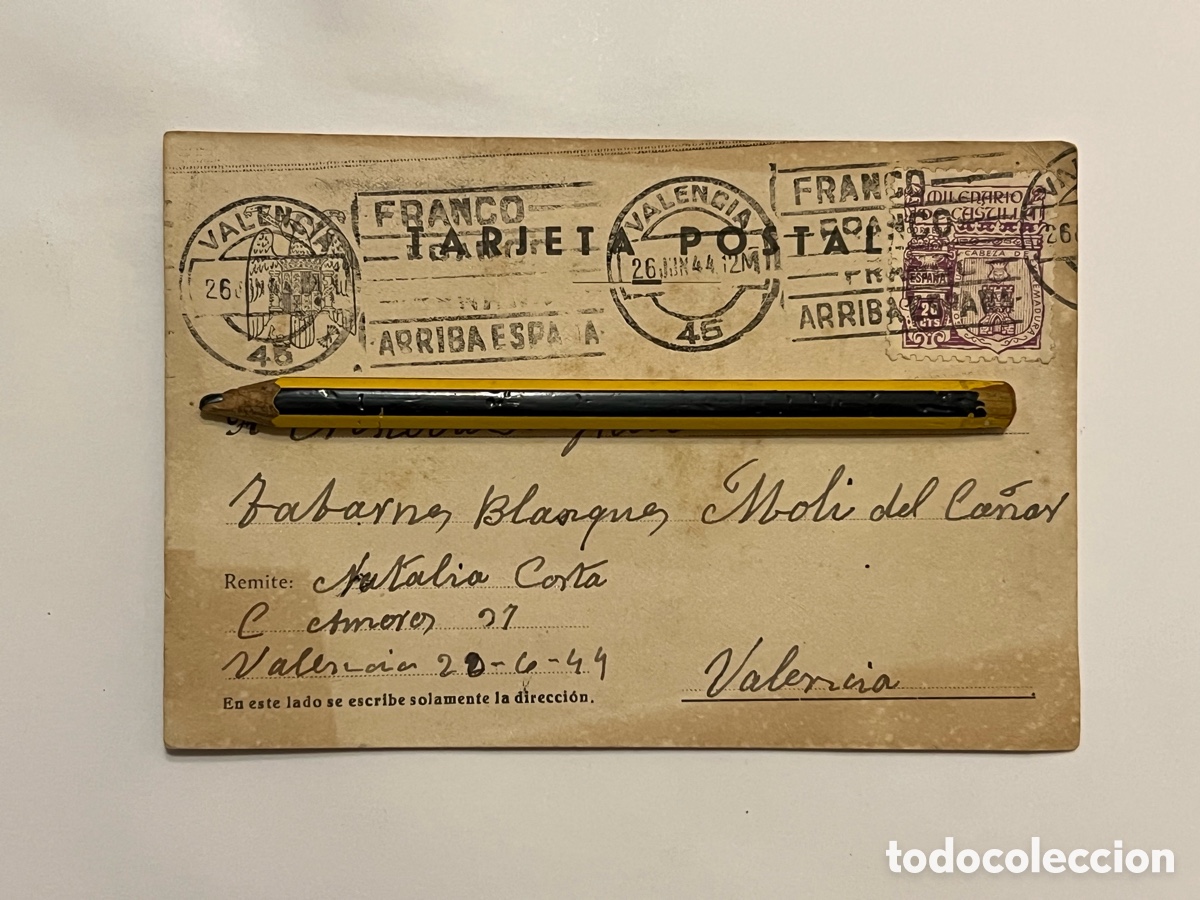 VALENCIA
26 JUN 44
46
FRANCO
ARRIBA ESPAÑA
VALENCIA
26 JUN 44 12M
46
FRANCO
FRANCO
ARRIBA ESPAÑA
TARJETA POSTAL
MILENARIO
DE CASTILLA
CABEZA DE
ESPAÑA
20
CTS
Tabarnes Blanques Moli del Cañar
Remite: Natalia Costa
C Amoros
Valencia 22-6-44
Valencia
En este lado se escribe solamente la dirección.
todocoleccion